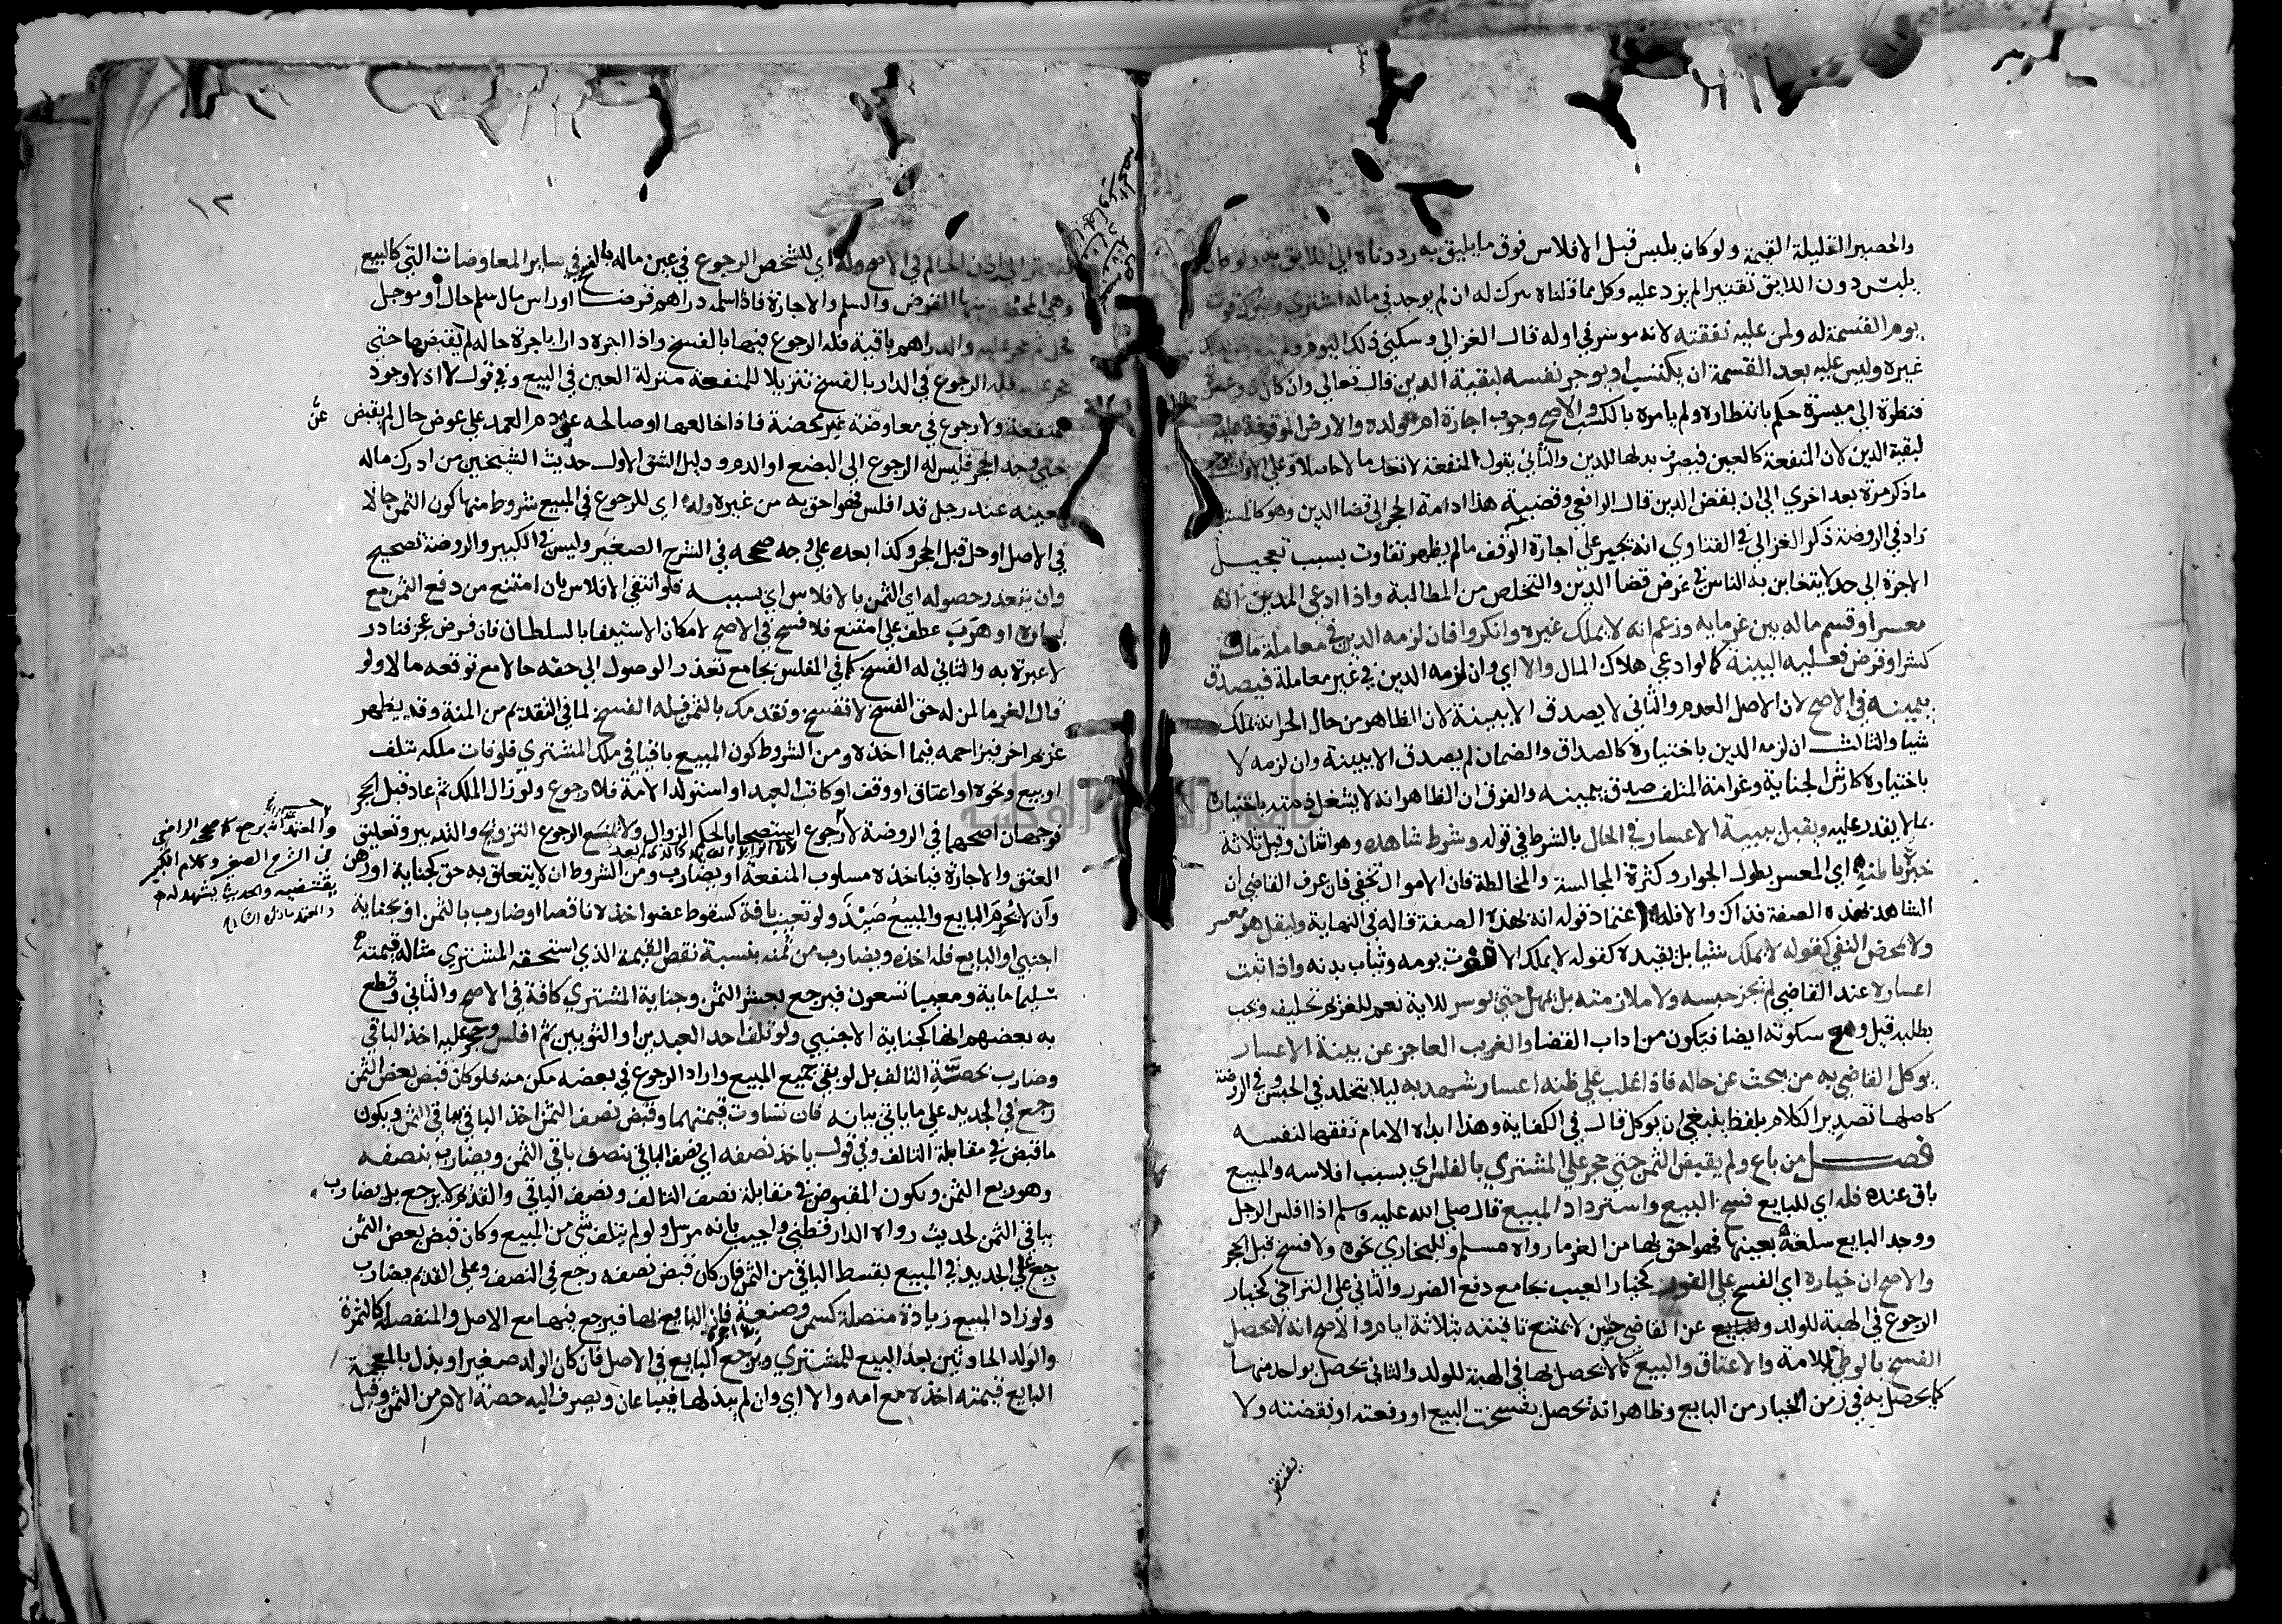 والحصير القليلة القيمة ولو كان يلبس قبل الافلاس فوق ما يليق به رددناه الي اللايق به ولو كان
يلبس دون اللايق تقتيرا لم يزد عليه وكل ما قلناه يترك له ان لم يوجد في ماله اشتري ويترك قوت
يوم القسمة له ولمن عليه نفقته لانه موسر في اوله قال الغزالي وسكني ذلك اليوم
غيره وليس عليه بعد القسمة ان يكتسب او يوجر نفسه لبقية الدين قال تعالي وان كان ذو عسرة
فنظرة الي ميسرة حكم بانتظاره ولم يامره بالكسب والاصح وجوب اجارة ام ولده والارض الموقوفة عليه
لبقية الدين لان المنفعة كالعين فيصرف بدلها للدين والثاني يقول المنفعة لا تعد مالا حاصلا وعلي الاول يوجر
ما ذكر مرة بعد اخري الي ان يفضي الدين قال الرافعي وقضية هذا ادامة الحجر الي قضا الدين وهو كالمستبعد
زاد في الروضة ذكر الغزالي في الفتاوي انه يجبر علي اجارة الوقف ما لم يظهر تفاوت بسبب تعجيل
الاجرة الي حد لا يتغابن به الناس في غرض قضا الدين والتخلص من المطالبة واذا ادعي المدين انه
معسر او قسم ماله بين غرمايه وزعم انه لا يملك غيره وانكروا فان لزمه الدين في معاملة مال
كشرا وقرض فعليه البينة كما لو ادعي هلاك المال والا اي وان لزمه الدين في غير معاملة فيصدق
بيمينه في الاصح لان الاصل العدم والثاني لا يصدق الا ببينة لان الظاهر من حال الحر انه يملك
شيا والثالث ان لزمه الدين باختياره كالصداق والضمان لم يصدق الا ببينة وان لزمه لا
باختياره كارش الجناية وغرامة المتلف صدق بيمينه والفرق ان الظاهر انه لا يشغل ذمته باختياره
بما لا يقدر عليه وتقبل بينة الاعسار في الحال بالشرط في قوله وشرط شاهده وهو اثنان وقيل ثلاثة
خبرة باطنه اي المعسر بطول الجوار وكثرة المجالسة والمخالطة فان الاموال تخفي فان عرف القاضي ان
الشاهد بهذه الصفة فذاك والا فله اعتماد قوله انه بهذه الصفة قاله في النهاية وليقل هو معسر
ولا يمحض النفي كقوله لا يملك شيا بل يقيده كقوله لا يملك الا قوت يومه وثياب بدنه واذا ثبت
اعساره عند القاضي لم يجز حبسه ولا ملازمته بل يمهل حتي يوسر للاية نعم للغريم تحليفه ويجب
بطلبه قبل ومع سكوته ايضا فيكون من اداب القضا والغريب العاجز عن بينة الاعسار
يوكل القاضي به من يبحث عن حاله فاذا غلب علي ظنه اعساره شهد به ليلا يتخلد في الحبس وفي الروضة
كاصلها تصدير الكلام بلفظ ينبغي ان يوكل قال في الكفاية وهذا ابداه الامام تفقها لنفسه
فصل من باع ولم يقبض الثمن حتي حجر علي المشتري بالفلس اي بسبب افلاسه والمبيع
باق عنده فله اي للبايع فسخ البيع واسترداد المبيع قال صلي الله عليه وسلم اذا افلس الرجل
ووجد البايع سلعته بعينها فهو احق بها من الغرما رواه مسلم وللبخاري نحوه ولا فسخ قبل الحجر
والاصح ان خياره اي الفسخ علي الفور كخيار العيب بجامع دفع الضرر والثاني علي التراخي كخيار
الرجوع في الهبة للولد عن القاضي حسين لا يمتنع تاقيته بثلاثة ايام والاصح انه لا يحصل
الفسخ بالوطئ للامة والاعتاق والبيع كما لا يحصل بها في الهبة للولد والثاني تحصل بواحد منها
كما يحصل به في زمن الخيار من البايع وظاهر انه يحصل بفسخت البيع او رفعته او نقضته ولا
يفتقر
١٢
يفتقر الي اذن الحاكم في الاصح وله اي للشخص الرجوع في عين ماله بالفسخ في ساير المعاوضات التي كالبيع
وهي المحضة منها القرض والسلم والاجارة فاذا سلمه دراهم قرضا او راس مال سلم حال او موجل
ثم حجر عليه والدراهم باقية فله الرجوع فيها بالفسخ واذا اجره دارا باجرة حالة لم يقبضها حتي
حجر عليه فله الرجوع في الدار بالفسخ تنزيلا للمنفعة منزلة العين في البيع وفي قول لا اذ لا وجود
للمنفعة ولا رجوع في معاوضة غير محضة فاذا خالعها او صالحه عن دم العمد علي عوض حال لم يقبض
عن
حتي وجد الحجر فليس له الرجوع الي البضع او الدم ودليل الشق الاول حديث الشيخين من ادرك ماله
بعينه عند رجل قد افلس فهو احق به من غيره وله اي للرجوع في المبيع شروط منها كون الثمن حالا
في الاصل او حل قبل الحجر وكذا بعده علي وجه صححه في الشرح الصغير وليس في الكبير والروضة تصحيح
وان يتعذر حصوله اي الثمن بالافلاس اي بسببه فلو انتفي الافلاس بان امتنع من دفع الثمن مع
يساره او هرب عطف علي امتنع فلا فسخ في الاصح لامكان الاستيفا بالسلطان فان فرض عجز فنادر
لا عبرة به والثاني له الفسخ كما في المفلس بجامع تعذر الوصول الي حقه حالا مع توقعه مالا ولو
قال الغرما لمن له حق الفسخ لا تفسخ ونقدمك بالثمن فله الفسخ لما في التقديم من المنة وقد يظهر
غريم اخر فيزاحمه فيما اخذه ومن الشروط كون المبيع باقيا في ملك المشتري فلو فات ملكه بتلف
او بيع ونحوه او اعتاق او وقف او كاتب العبد او استولد الامة فلا رجوع ولو زال الملك ثم عاد قبل الحجر
فوجهان اصحهما في الروضة لا رجوع استصحابا لحكم الزوال ولا يمنع الرجوع التزويج والتدبير وتعليق
العتق والاجارة فياخذه مسلوب المنفعة او يضارب ومن الشروط ان لا يتعلق به حق كجناية او رهن
وان لا يحرم البايع والمبيع صيد ولو تعيب بافة كسقوط عضو اخذه ناقصا او ضارب بالثمن او بجناية
اجنبي او البايع فله اخذه ويضارب من ثمنه بنسبة نقص القيمة الذي استحقه المشتري مثاله قيمته
سليما ماية ومعيبا تسعون فيرجع بعشر الثمن وجناية المشتري كافة في الاصح والثاني وقطع
به بعضهم انها كجناية الاجنبي ولو تلف احد العبدين او الثوبين ثم افلس وحجر عليه اخذ الباقي
وضارب بحصة التالف بل لو بقي جميع المبيع واراد الرجوع في بعضه مكن منه فلو كان قبض بعض الثمن
رجع في الجديد علي ما ياتي بيانه فان تساوت قيمتهما وقبض نصف الثمن اخذ الباقي بباقي الثمن ويكون
ما قبض في مقابلة التالف وفي قول ياخذ نصفه اي نصف الباقي بنصف باقي الثمن ويضارب بنصفه
وهو ربع الثمن ويكون المقبوض في مقابلة نصف التالف ونصف الباقي والقديم لا يرجع بل يضارب
بباقي الثمن لحديث رواه الدارقطني واجيب بانه مرسل ولو لم يتلف شي من المبيع وكان قبض بعض الثمن
رجع علي الجديد في المبيع بقسط الباقي من الثمن فان كان قبض نصفه رجع في النصف وعلي القديم يضارب
ولو زاد المبيع زيادة متصلة كسمن وصنعة فاز البايع بها فيرجع فيها مع الاصل والمنفصلة كالثمرة
والولد الحادثين بعد البيع للمشتري ويرجع البايع في الاصل فان كان الولد صغيرا وبذل بالمعجمة
البايع قيمته اخذه مع امه والا اي وان لم يبذلها فيباعان ويصرف اليه حصة الام من الثمن وقيل
والمعتمد انه يرجع كما صححه الرافعي
في الشرح الصغير وكلام الكبير
يقتضيه والحديث يشهد له